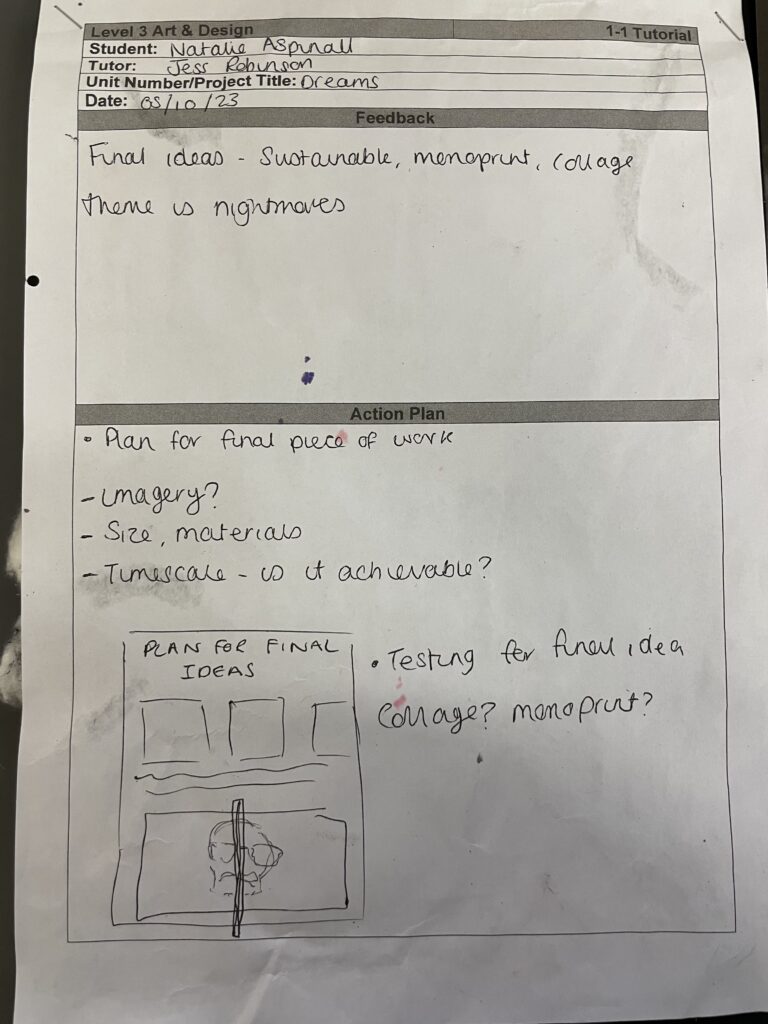 Level 3 Art & Design
1-1 Tutorial
Student: Natalie Aspinall
Tutor: Jess Robinson
Unit Number/Project Title: Dreams
Date: 05/10/23
Feedback
Final ideas - Sustainable, monoprint, collage
theme is nightmares
Action Plan
• Plan for final piece of work
- imagery?
- Size, materials
- Timescale - is it achievable?
PLAN FOR FINAL
IDEAS
• Testing for final idea
Collage? monoprint?